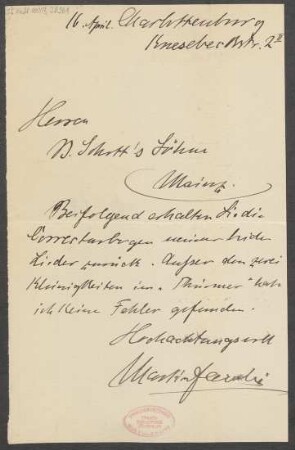 16. April. Charlottenburg
Knesebeckstr. 2 II
Herren
B. Schott's Söhne
Mainz.
Beifolgend erhalten Sie die
Correcturbogen meiner beiden
Lieder zurück. Außer den zwei
Kleinigkeiten im „Thürmer" hab
ich keine Fehler gefunden.
Hochachtungsvoll
Martin Jacobi